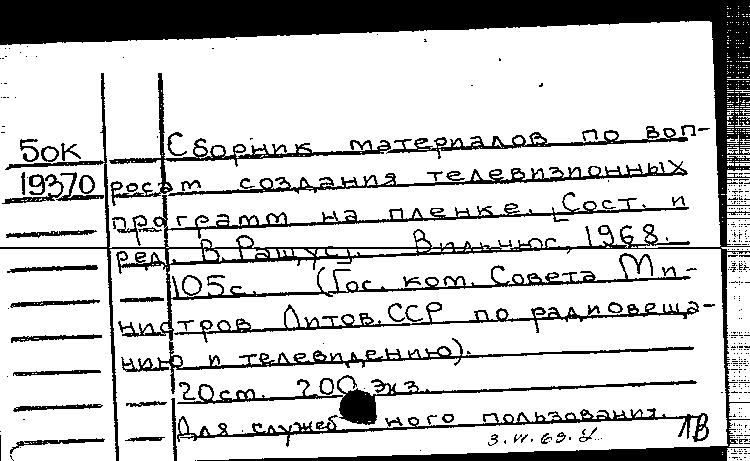 5ОК Сборник материалов по воп-
19370 росам создания телевизионных
программ на пленке. [Сост. и
ред. В. Ращус]. Вильнюс, 1968.
105с. (Гос. ком. Совета Ми-
нистров Литов. ССР по радиовеща-
нию и телевидению).
20см. 200 экз.
Для служебного пользования.
1В